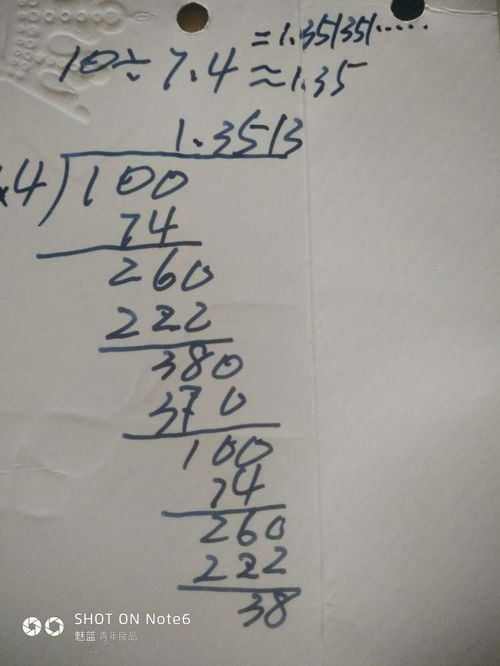 = 1.351351.....
10÷7.4 ≈1.35
1.3513
4)100
74
260
222
380
370
100
74
260
222
38
SHOT ON Note6
魅蓝 青年良品